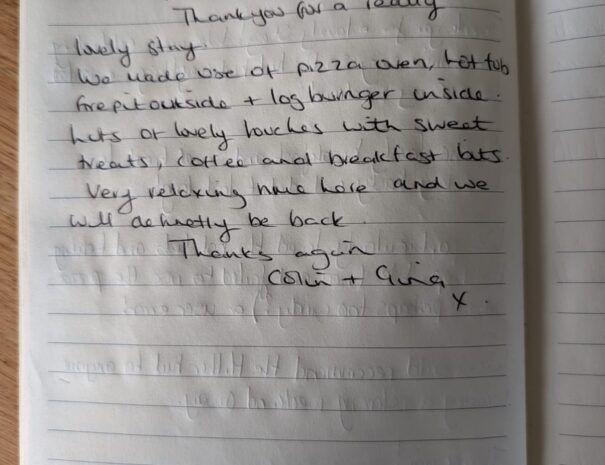 Thank you for a really
lovely stay.
We made use of pizza oven, hot tub
firepit outside + log burnger inside.
Lots of lovely touches with sweet
treats, coffee and breakfast bits.
Very relaxing time here and we
will definetly be back.
Thanks again
Colin + Gina
x.